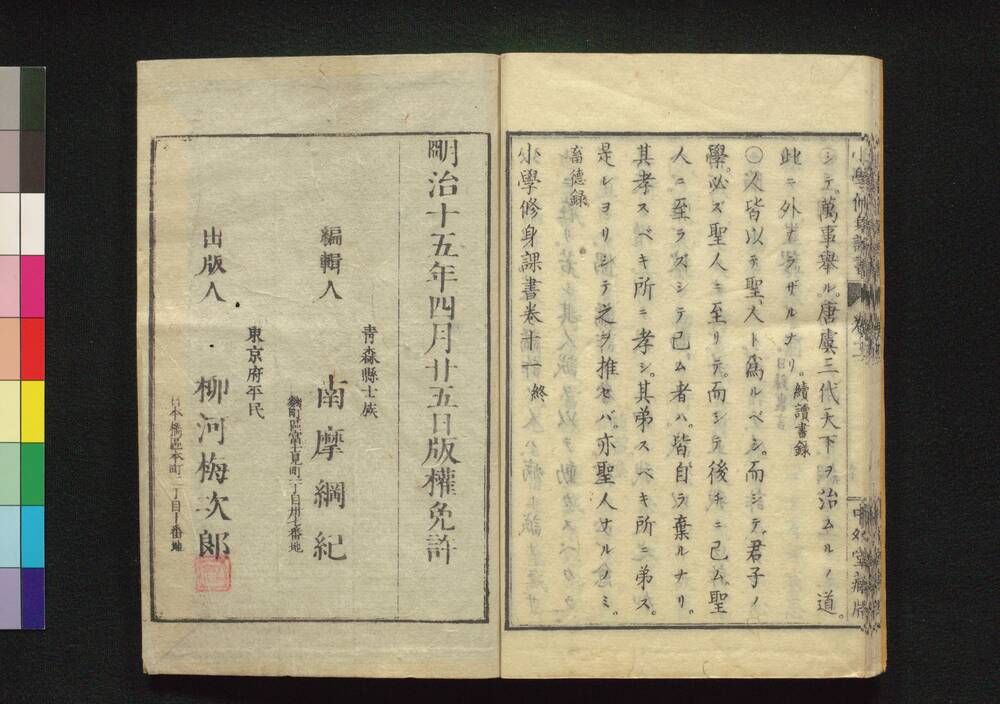 シテ。萬事舉ル。唐虞三代天下ヲ治ムルノ道。
此ニ外ナラザルナリ。續讀書錄
〇人皆以テ聖人ト爲ルベシ。而シテ君子ノ
學。必ズ聖人ニ至リテ。而シテ後チニ已ム。聖
人ニ至ラズシテ已ム者ハ。皆自ラ棄ルナリ。
其孝スベキ所ニ孝シ。其弟スベキ所ニ弟ス。
是レヨリシテ之ヲ推セバ。亦聖人ナルノミ。
畜德錄
小學修身課書卷十一 終
明治十五年四月廿五日版權免許
青森縣士族
編輯人 南摩綱紀
麴町區富士見町一丁目卅七番地
東京府平民
出版人 柳河梅次郎
日本橋區本町二丁目十番地